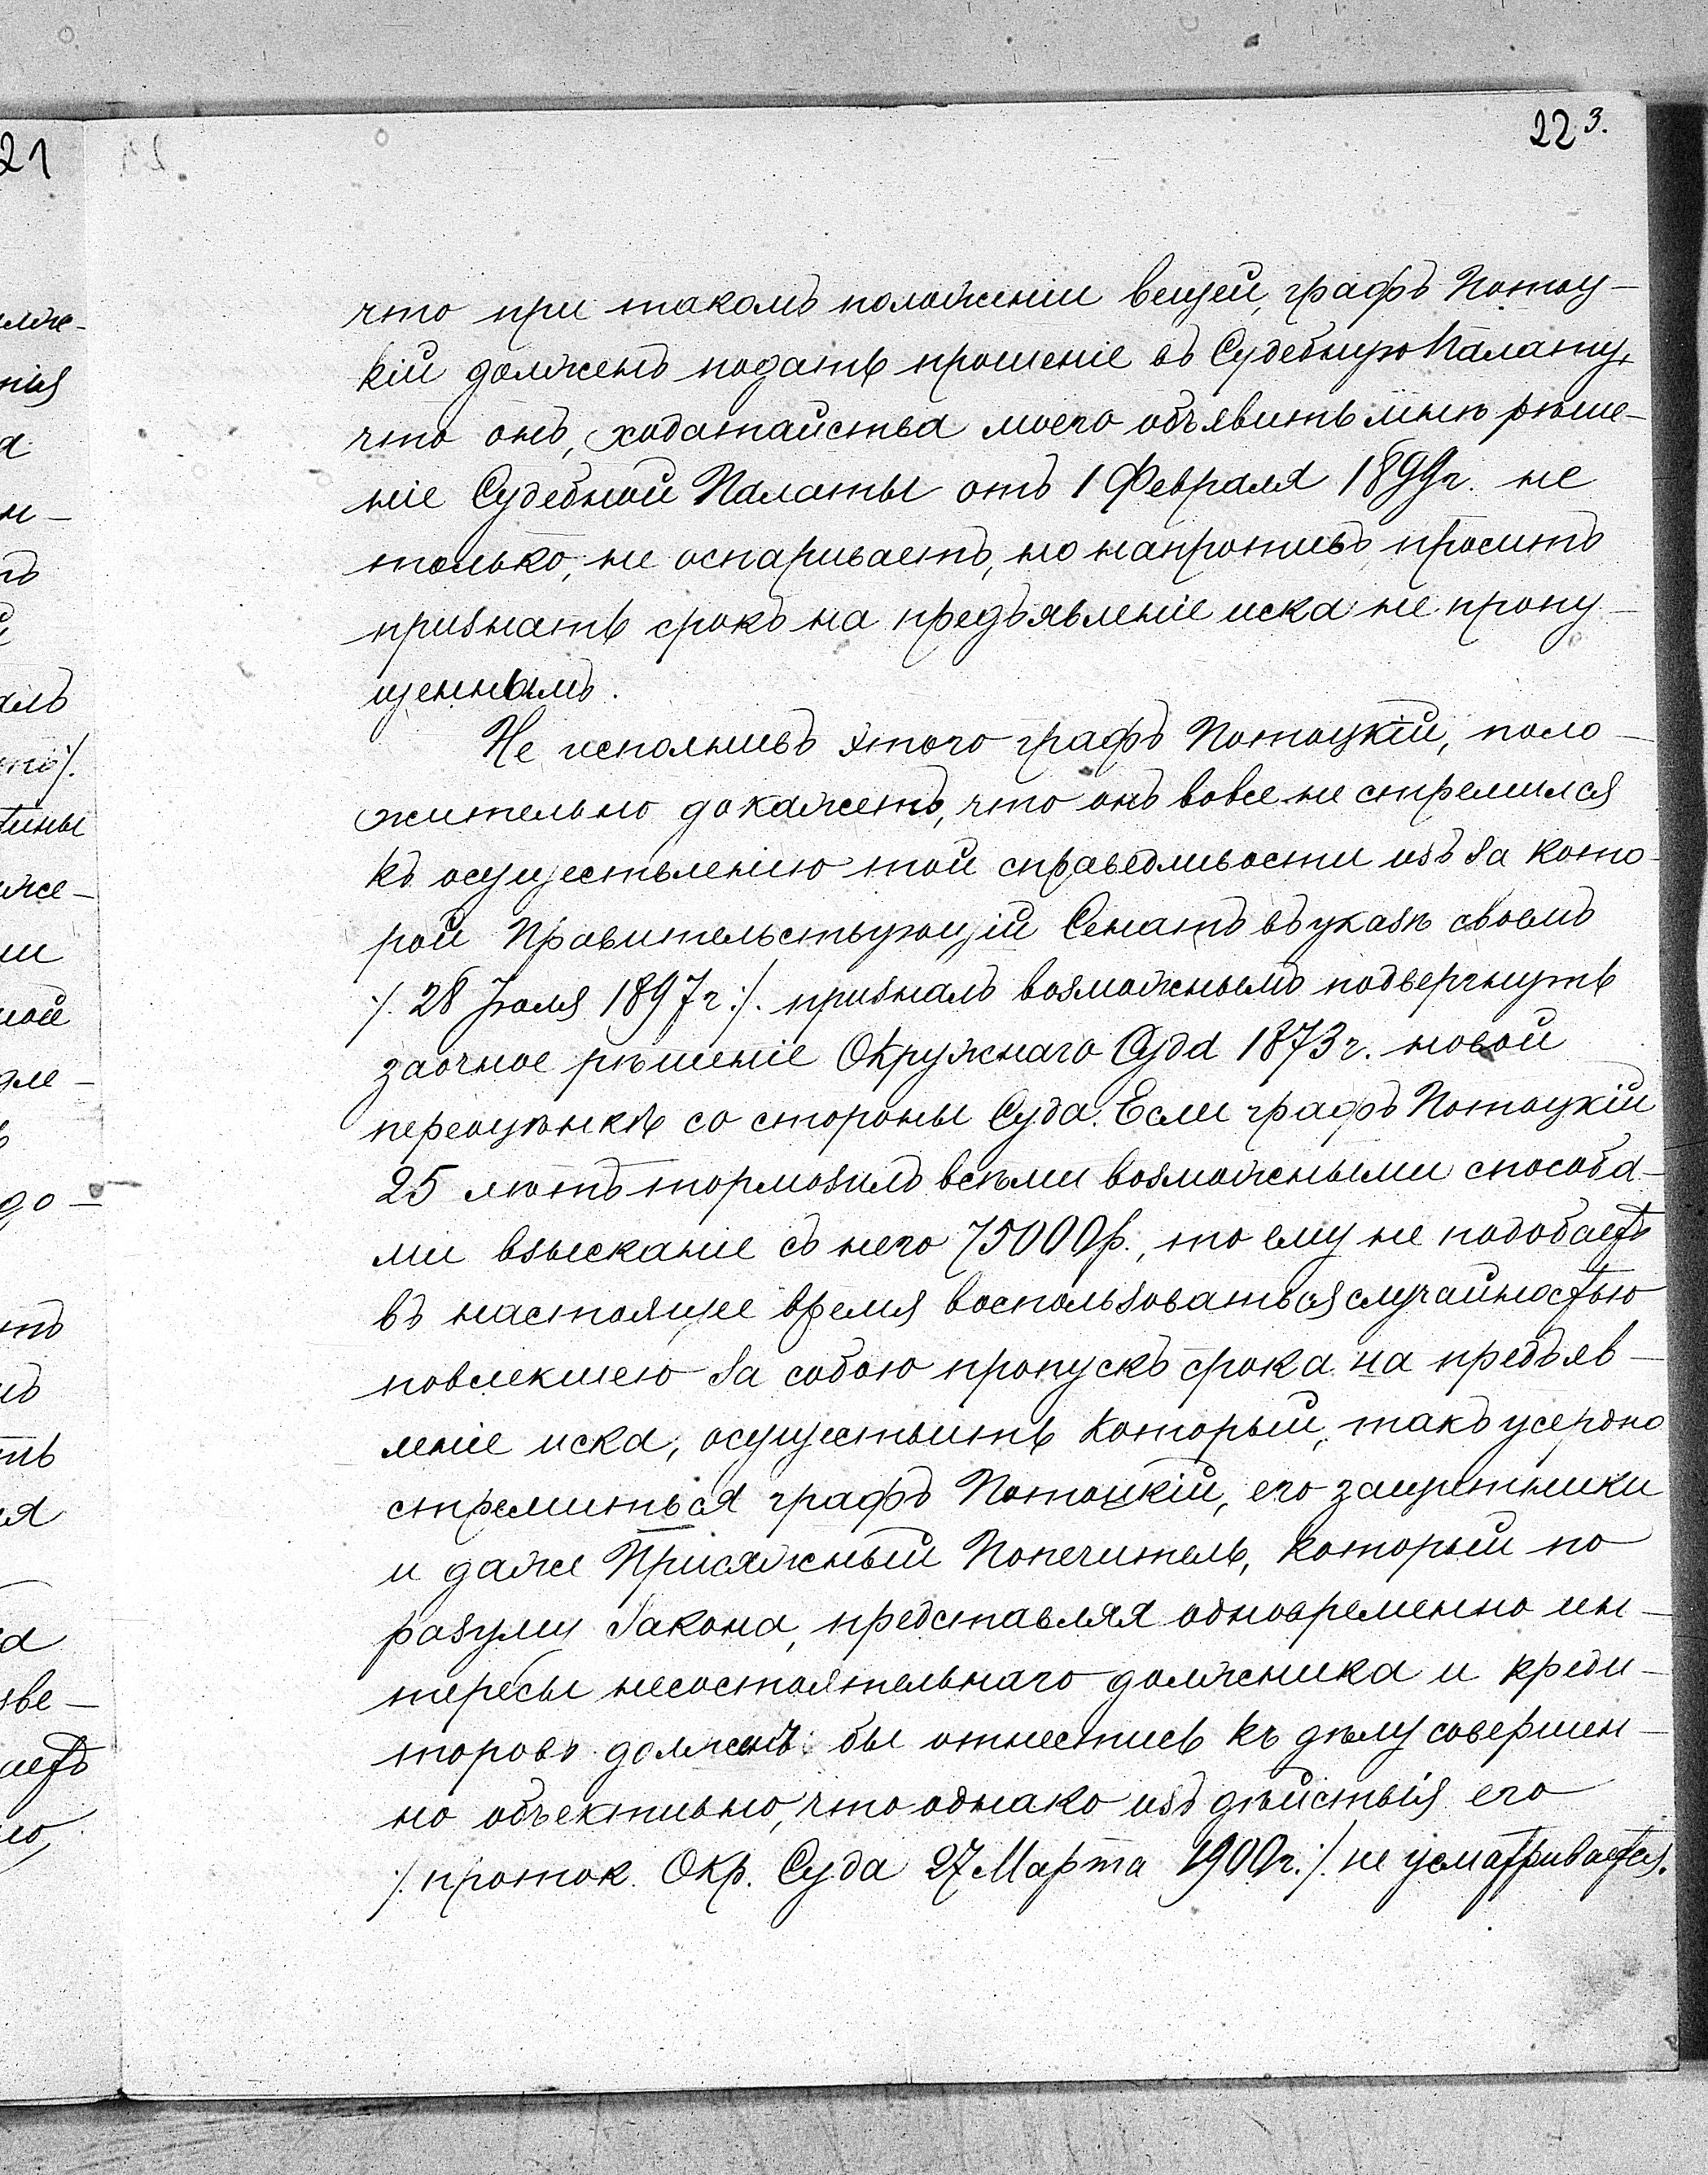 22 3.
что при такомъ положеніи вещей, графъ Потоц-
кій долженъ подать прошеніе въ Судебную Палату,
что онъ, ходатайства моего объявить мнѣ рѣше-
ніе Судебной Палаты отъ 1 Февраля 1899г. не
только, не оспариваетъ, но напротивъ, проситъ
признать срокъ на предъявленіе иска не пропу-
щеннымъ.
Не исполнивъ этого графъ Потоцкій, поло-
жительно докажетъ, что онъ вовсе не стремился
къ осуществленію той справедливости изъ за кото-
рой Правительствующій Сенатъ въ указѣ своемъ
/. 28 Іюля 1897г ./. призналъ возможнымъ подвергнуть
заочное рѣшеніе Окружнаго Суда 1873г. новой
переоцѣнкѣ со стороны Суда. Если графъ Потоцкій
25 лѣтъ тормозилъ всѣми возможными способа-
ми взысканіе съ него 75000р., то ему не подобаетъ
въ настоящее время воспользоваться случайностью
повлекшею за собою пропускъ срока на предъяв-
леніе иска, осуществить который, такъ усердно
стремиться графъ Потоцкій, его защитники
и даже Присяжный Попечитель, который по
разуму Закона, представляя одновременно ин-
тересы несостоятельнаго должника и креди-
торовъ долженъ бы отнестись къ дѣлу совершен-
но объективно, что однако изъ дѣйствія его
/. проток. Окр. Суда 27 Марта 1900г. ./. не усматривается.
21